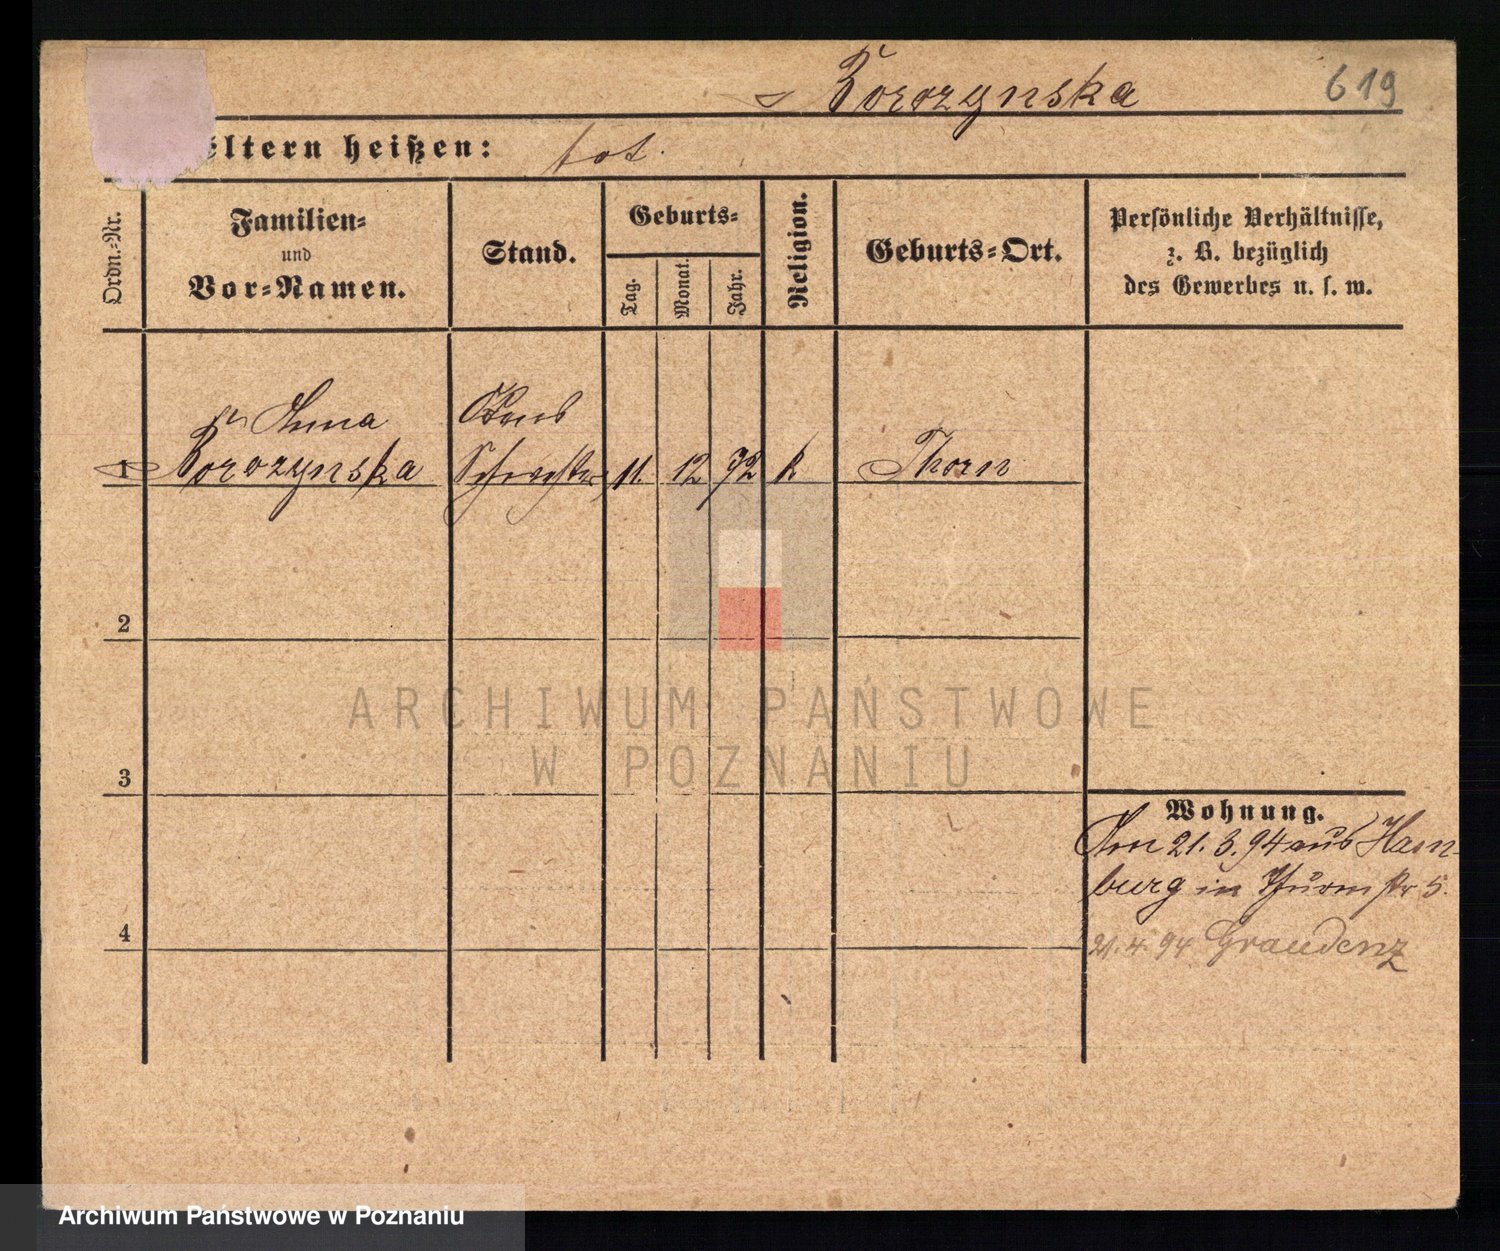 Borozynska 619
Eltern heißen: tot.
Ordn.-Nr.
Familien-
und
Vor-Namen.
Stand.
Geburts-
Tag.
Monat.
Jahr.
Religion.
Geburts-Ort.
Persönliche Verhältnisse,
z. B. bezüglich
des Gewerbes u. s. w.
Anna
1 Borozynska Schwester 11. 12 72 k Thorn
2
ARCHIWUM PAŃSTWOWE
W POZNANIU
3
Wohnung.
Am 21. 3. 94 aus Ham-
burg in Thurmstr 5.
4
21. 4. 94 Graudenz
Archiwum Państwowe w Poznaniu